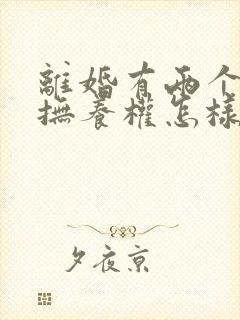 離婚有兩个
撫養權怎樣
夕夜京